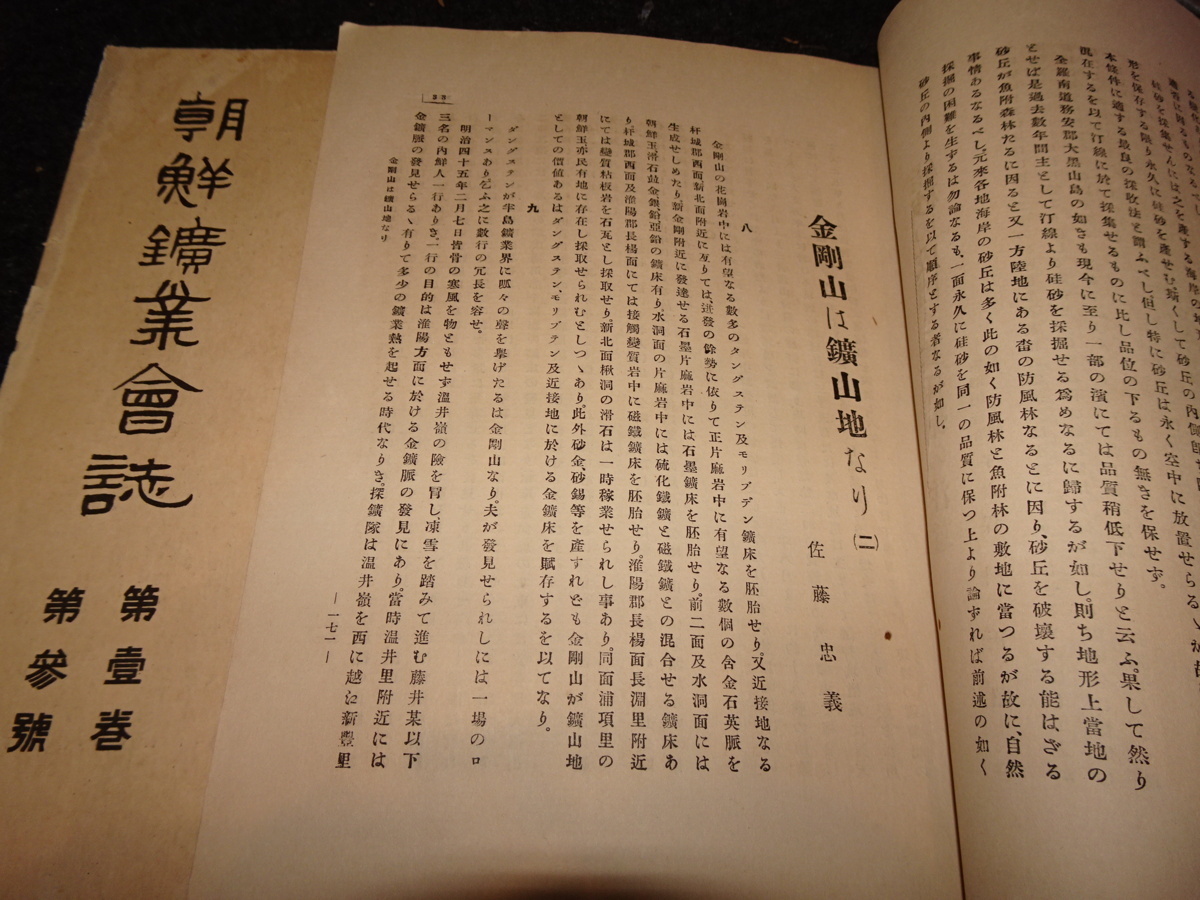 る
通常に因るものなるべし
硅砂を採集せんには之を產する海岸の
形を保存する限り永久に硅砂を產せむ
本條件に適する最良の採收法と謂ふべし、但し特に砂丘は永く空中に放置せらるゝが故
現在するを以て汀線に於て採集せるものに比し品位の下るもの無きを保せず。
全羅南道務安郡大黑山島の如きも現今に至り一部の濱にては品質稍低下せりと云ふ、果して然り
とせば是過去數年間主として汀線より硅砂を採掘せる爲めなるに歸するが如し、則ち地形上當地の
砂丘が魚附森林たるに因ると又一方陸地にある畓の防風林なるとに因り、砂丘を破壞する能はざる
事情あるなるべし、元來各地海岸の砂丘は多く此の如く防風林と魚附林の敷地に當つるが故に、自然
採掘の困難を生ずるは勿論なるも、一面永久に硅砂を同一の品質に保つ上より論ずれば前述の如く
砂丘の內側より採掘するを以て順序とする者なるが如し。
金剛山は鑛山地なり (二)
佐藤忠義
八
金剛山の花崗岩中には有望なる數多のタングステン及モリブデン鑛床を胚胎せり、又近接地なる
杆城郡西面新北面附近に亙りては迸發の餘勢に依りて正片麻岩中に有望なる數個の含金石英脈を
生成せしめたり新金剛附近に發達せる石墨片麻岩中には石墨鑛床を胚胎せり。前二面及水洞面には
朝鮮玉滑石鼓金銀鉛亞鉛の鑛床有り水洞面の片麻岩中には硫化鐵鑛と磁鐵鑛との混合せる鑛床あ
り杆城郡西面及淮陽郡長楊面にては接觸變質岩中に磁鐵鑛床を胚胎せり。淮陽郡長楊面長淵里附近
にては變質粘板岩を石瓦とし採取せり。新北面楸洞の滑石は一時稼業せられし事あり。同面浦項里の
朝鮮玉亦民有地に存在し採取せられむとしつゝあり。此外砂金、砂錫等を產すれども金剛山が鑛山地
としての價値あるはタングステン、モリブデン及近接地に於ける金鑛床を賦存するを以てなり。
九
タングステンが半島鑛業界に呱々の聲を擧げたるは金剛山なり。夫が發見せられしには一場のロ
ーマンスあり。乞ふ之に數行の冗長を容せ。
明治四十五年二月七日皆骨の寒風を物ともせず溫井嶺の險を冒し、凍雪を踏みて進む藤井某以下
三名の內鮮人一行ありき、一行の目的は淮陽方面に於ける金鑛脈の發見にあり。當時溫井里附近には
金鑛脈の發見せらるゝ有りて多少の鑛業熱を起せる時代なりき。探鑛隊は溫井嶺を西に越え新豐里
金剛山は鑛山地なり
—一七一—
33
朝鮮鑛業會誌
第壹卷
第參號